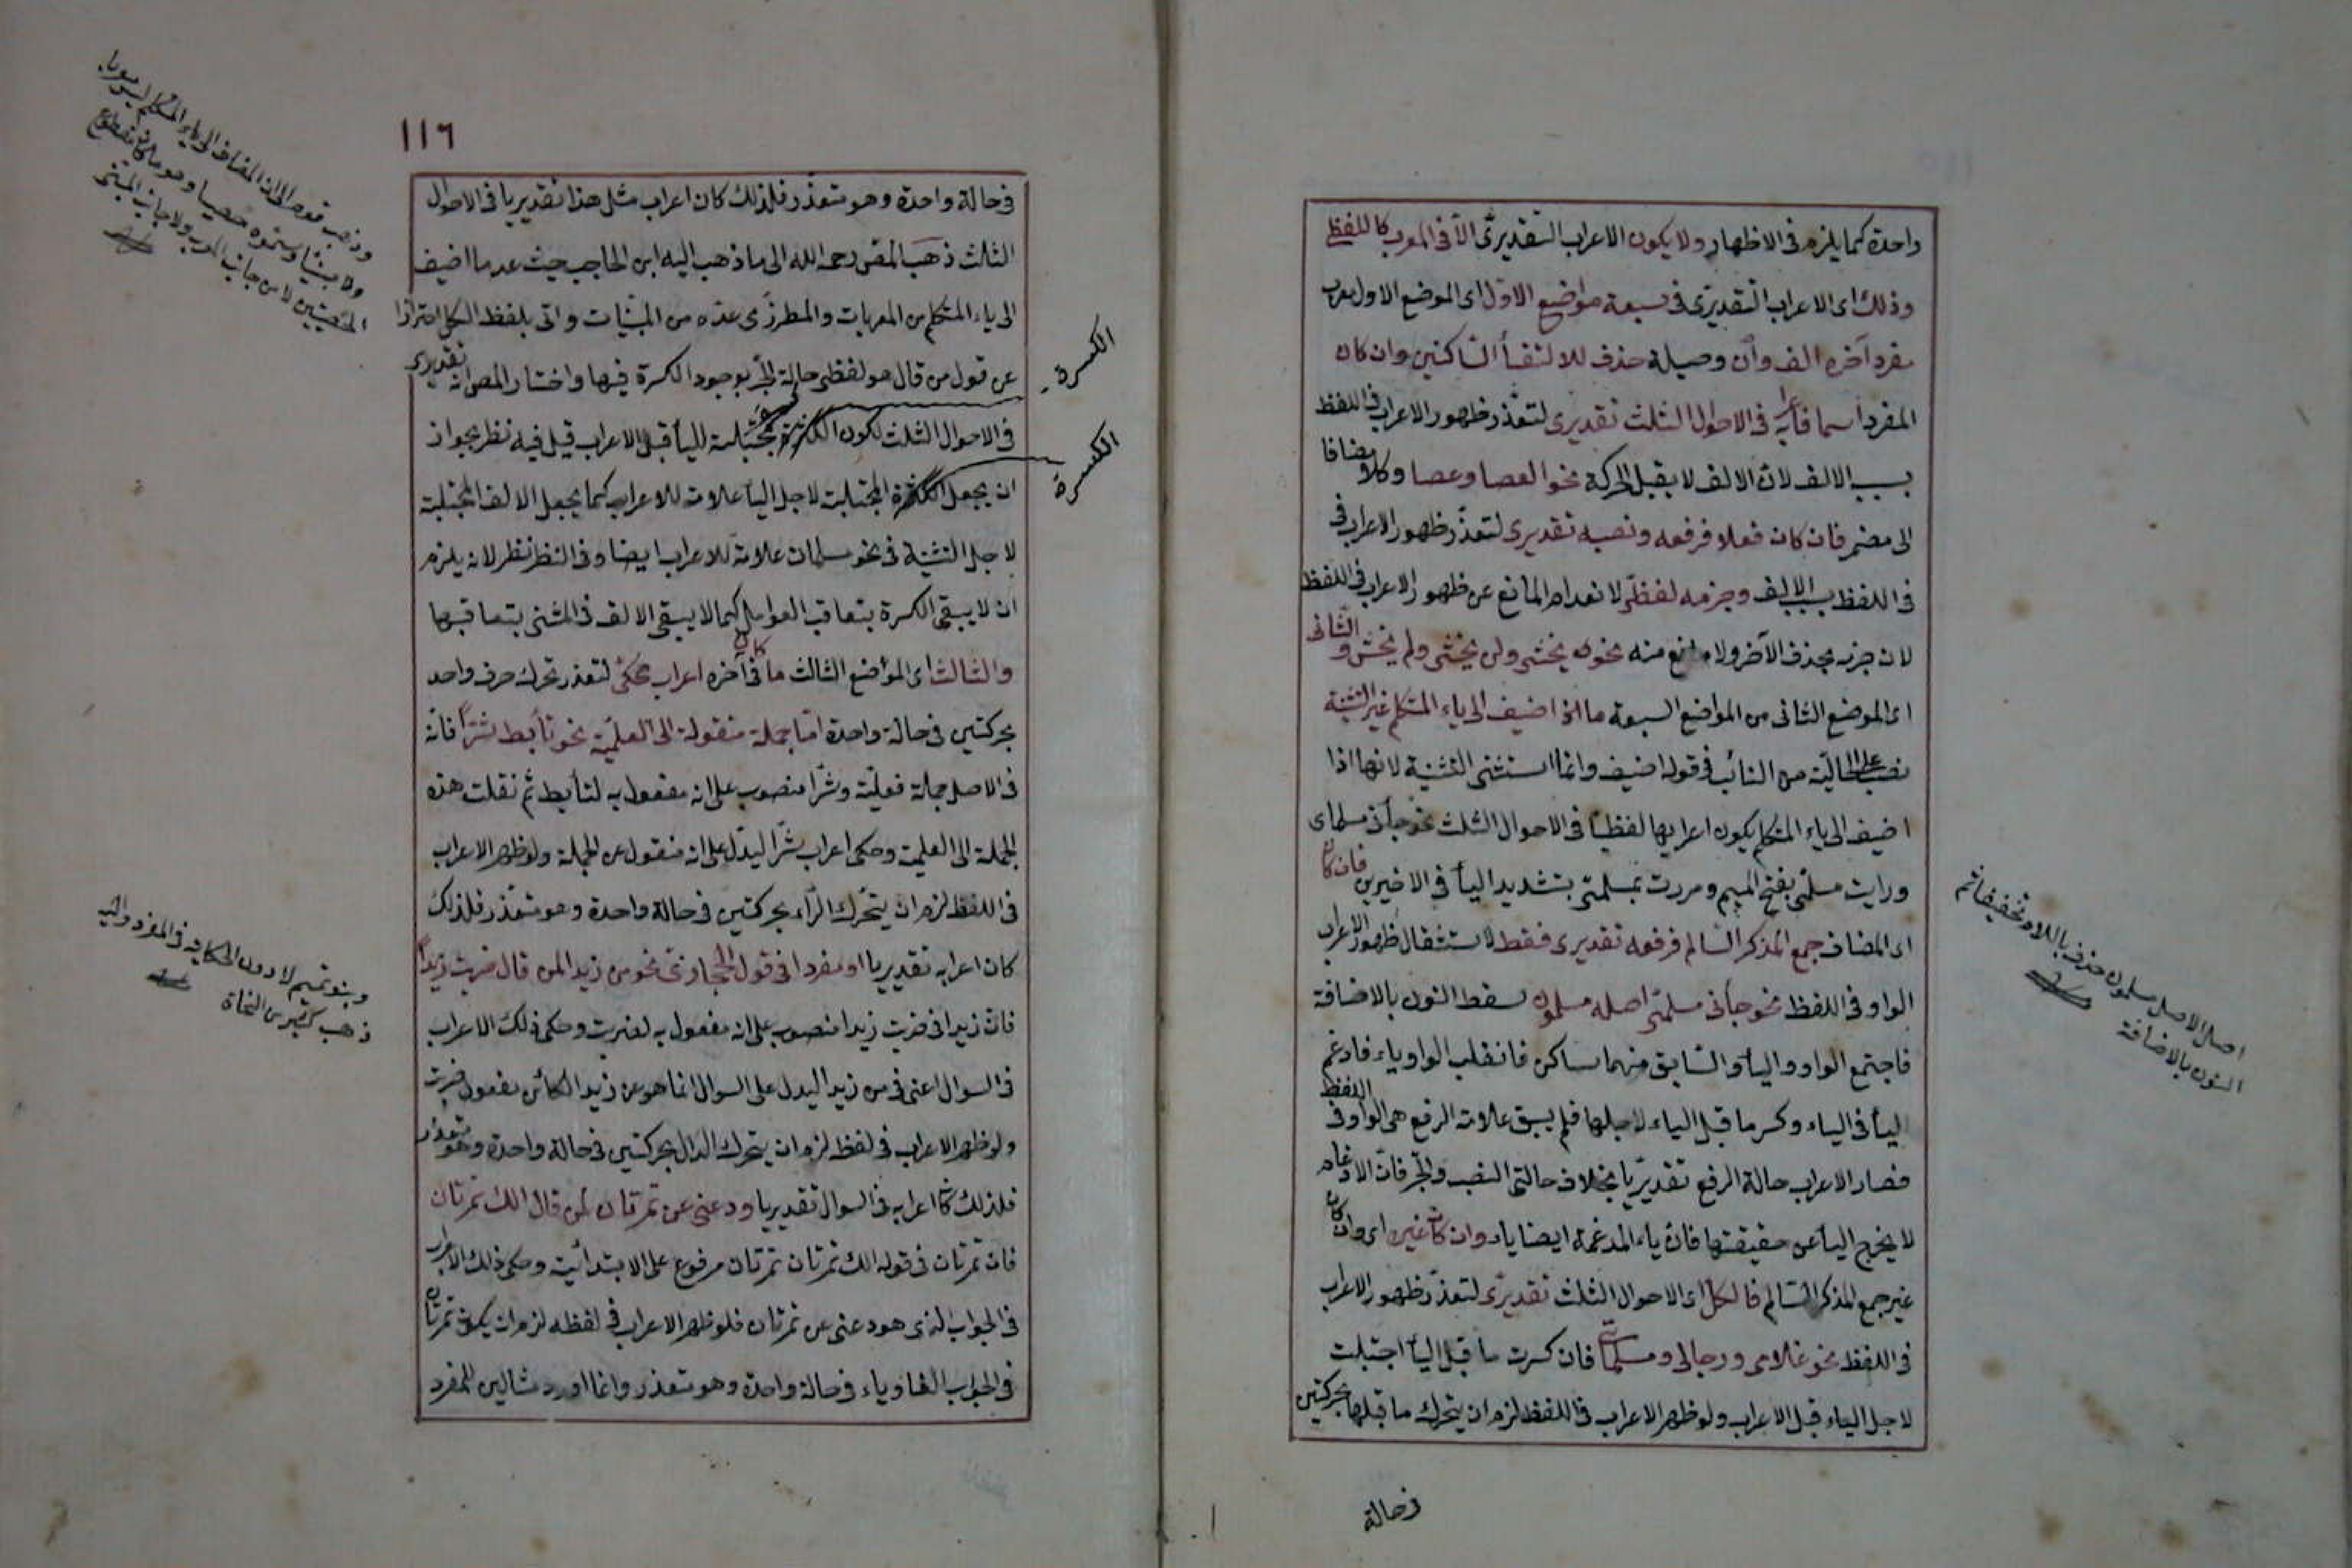 واحدة كما يلزم فى الاظهار ولا يكون الاعراب التقديرى الا فى المعرب كاللفظى
وذلك اى الاعراب التقديرى فى سبعة مواضع الاول اى الموضع الاول معرب
مفرد آخره الف وان وصيلة حذف للالتقأ الساكنين وان كان
المفرد اسما فاعرابه فى الاحوال الثلث تقديرى لتعذر ظهور الاعراب فى اللفظ
بسبب الالف لان الالف لا يقبل الحركة نحو العصا وعصا وكلا مضافا
الى مضمر فان كان فعلا فرفعه ونصبه تقديرى لتعذر ظهور الاعراب فى
فى اللفظ بسبب الالف وجزمه لفظى لانعدام المانع عن ظهور الاعراب فى اللفظ
لان جزمه بحذف الآخر ولا مانع منه نحو يخشى ولن يخشى ولم يخش والثانى
اى الموضع الثانى من المواضع السبعة ما اذا اضيف الى ياء المتكلم غير التثنية
نصب على الحالية من النائب فى قوله اضيف وانما استثنى التثنية لانها اذا
اضيف الى ياء المتكلم يكون اعرابها لفظيا فى الاحوال الثلث نحو جأنى مسلماى
ورايت مسلمى بفتح الميم ومررت بمسلمى بتشديد اليأ فى الاخيرين فان كان
اى المضاف جمع المذكر السالم فرفعه تقديرى فقط لاستثقال ظهور الاعراب
الواو فى اللفظ نحو جأنى مسلمى اصله مسلمون سقط النون بالاضافة
فاجتمع الواو واليأ والسابق منهما ساكن فانقلب الواو ياء فادغم
اليأ فى الياء وكسر ما قبل الياء لاجلها فلم يبق علامة الرفع هى الواو فى اللفظ
فصار الاعراب حالة الرفع تقديريا بخلاف حالتى النصب والجر فان الادغام
لا يخرج اليأ عن حقيقتها فان ياء المدغمة ايضا ياء وان كان غيره اى وان كان
غير جمع المذكر السالم فالكل اى الاحوال الثلث تقديرى لتعذر ظهور الاعراب
فى اللفظ نحو غلامى ورجالى ومسلماتى فان كسرت ما قبل اليأ اجتبلت
لاجل الياء قبل الاعراب ولو ظهر الاعراب فى اللفظ لزم ان يتحرك ما قبلها بحركتين
فى حالة
اصل الاصل مسلمون حذف باللام وتخفيفا ثم
النون بالاضافة
١١٦
فى حالة واحدة وهو متعذر فلذلك كان اعراب مثل هذا تقديريا فى الاحوال
الثلث ذهب المص رحمه الله الى ما ذهب اليه ابن الحاجب حيث عد ما اضيف
الى ياء المتكلم من المعربات والمطرزى عده من المبنيات واتى بلفظ الكل احترازا
عن قول من قال هو لفظى حالة الجر بوجود الكسرة فيها واختار المص انه تقديرى
فى الاحوال الثلث لكون الكسرة مجتبلة لليأ قبل الاعراب قيل فيه نظر بجواز
ان يجعل الكسرة المجتبلة لاجل اليأ علامة للاعراب كما يجعل الالف المجتبلة
لاجل التثنية فى نحو مسلمان علامة للاعراب ايضا وفى النظر نظر لانه يلزم
ان لا يبقى الكسرة بتعاقب العوامل كما لا يبقى الالف فى المثنى بتعاقبها
والثالث اى المواضع الثالث ما كان فى آخره اعراب محكى لتعذر تحرك حرف واحد
بحركتين فى حالة واحدة اما جملة منقولة الى العلمية نحو تأبط شرا فانه
فى الاصل جملة فعلية وشرا منصوب على انه مفعول به لتأبط ثم نقلت هذه
الجملة الى العلمية وحكى اعراب شرا ليدل على انه منقول عن الجملة ولو ظهر الاعراب
فى اللفظ لزم ان يتحرك الراء بحركتين فى حالة واحدة وهو متعذر فلذلك
كان اعرابه تقديريا او مفردا فى قول الحجازى نحو من زيدا لمن قال ضربت زيدا
فان زيدا فى ضربت زيدا منصوب على انه مفعول به لضربت وحكى ذلك الاعراب
فى السوال اعنى فى من زيدا ليدل على السوال انما هو عن زيد الكائن مفعول ضربت
ولو ظهر الاعراب فى لفظه لزم ان يتحرك الدال بحركتين فى حالة واحدة وهو متعذر
فلذلك كان اعرابه فى السوال تقديريا ودعنى عن تمرتان لمن قال الك تمرتان
فان تمرتان فى قوله الك تمرتان تمرتان مرفوع على الابتدائية وحكى ذلك الاعراب
فى الجواب الذى هو دعنى عن تمرتان فلو ظهر الاعراب فى لفظه لزم ان يكون تمرتان
فى الجواب الفا وياء فى حالة واحدة وهو متعذر وانما اورد مثالين للمفرد
الكسرة
الكسرة
وذهب قوم الى ان المضاف الى ياء المتكلم ليس معربا
ولا مبنيا وسموه خصيا
وبنو تميم لا يرون الحكاية فى المفرد واليه
ذهب كثير من النحاة